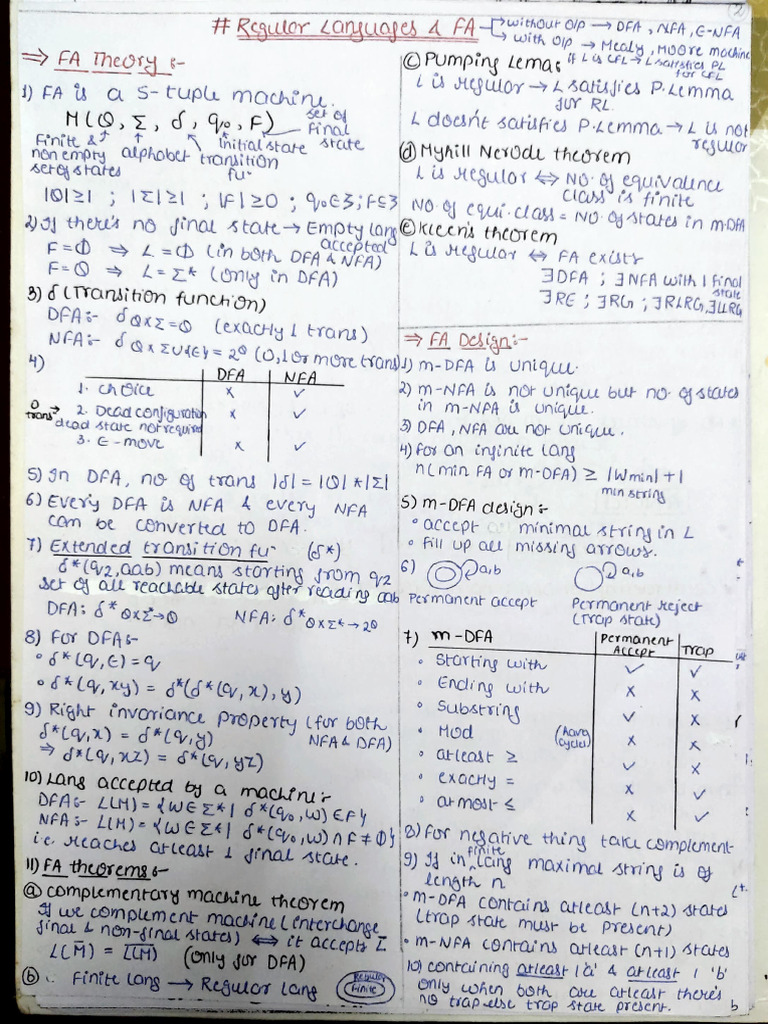 2
# Regular Languages & FA → without O/P → DFA, NFA, ∈-NFA
→ with O/P → Mealy, Moore machine
⇒ FA Theory :-
1) FA is a 5-tuple machine.
M(Q, Σ, δ, q0, F) set of final state
Finite & non empty set of states
alphabet
transition fuⁿ
initial state
|Q|≥1 ; |Σ|≥1 ; |F|≥0 ; q0∈Q ; F⊆Q
2) If there's no final state → Empty lang accepted
F=Φ ⇒ L=Φ (in both DFA & NFA)
F=Q ⇒ L=Σ* (only in DFA)
3) δ (Transition function)
DFA:- δ Q×Σ=Q (exactly 1 trans)
NFA:- δ Q×Σ∪{∈}=2^Q (0,1 or more trans)
4)
DFA NFA
1. Choice × ✓
0 trans → 2. Dead configuration × ✓
dead state not required
3. ∈-move × ✓
5) In DFA, no of trans |δ| = |Q| * |Σ|
6) Every DFA is NFA & every NFA
can be converted to DFA.
7) Extended transition fuⁿ (δ*)
δ*(q2,aab) means starting from q2
set of all reachable states after reading aab
DFA: δ* Q×Σ*→Q NFA: δ* Q×Σ*→2^Q
8) For DFA:-
• δ*(q,∈) = q
• δ*(q,xy) = δ*(δ*(q,x),y)
9) Right invariance property (for both
δ*(q,x) = δ*(q,y) NFA & DFA)
⇒ δ*(q,xz) = δ*(q,yz)
10) Lang accepted by a machine:-
DFA:- L(M) = {W∈Σ* | δ*(q0,w)∈F}
NFA:- L(M) = {W∈Σ* | δ*(q0,w)∩F≠Φ}
i.e. reaches atleast 1 final state.
11) FA theorems:-
ⓐ complementary machine theorem
If we complement machine (interchange
final & non-final states) ⇔ it accepts L̅
L(M̅) = L̅(̅M̅)̅ (only for DFA)
ⓑ Finite lang → Regular lang
Regular
Finite
ⓒ Pumping Lema: if L is CFL → L satisfies PL for CFL
L is regular → L satisfies P.Lemma
for RL.
L doesn't satisfies P.Lemma → L is not
regular
ⓓ Myhill Nerode theorem
L is regular ⇔ No. of equivalence
class is finite
No. of equi. class = No. of states in m-DFA
ⓔ Kleen's theorem
L is regular ⇔ FA exists
∃DFA ; ∃NFA with 1 final state
∃RE ; ∃RG ; ∃RLRG, ∃LLRG
⇒ FA Design:-
1) m-DFA is unique.
2) m-NFA is not unique but no. of states
in m-NFA is unique.
3) DFA, NFA are not unique.
4) for an infinite lang
n(min FA or m-DFA) ≥ |Wmin|+1
min string
5) m-DFA design:-
• accept all minimal string in L
• fill up all missing arrows.
6) a,b a,b
Permanent accept Permanent reject
(Trap state)
7) m-DFA Permanent Accept Trap
• Starting with ✓ ✓
• Ending with × ×
• Substring ✓ ×
• Mod (Having cycles) × ×
• atleast ≥ ✓ ×
• exactly = × ✓
• atmost ≤ × ✓
8) For negative thing take complement
9) If in finite lang maximal string is of
length n
• m-DFA contains atleast (n+2) states
(trap state must be present)
• m-NFA contains atleast (n+1) states
10) containing atleast 1 'a' & atleast 1 'b'
only when both are atleast there's
no trap else trap state present.